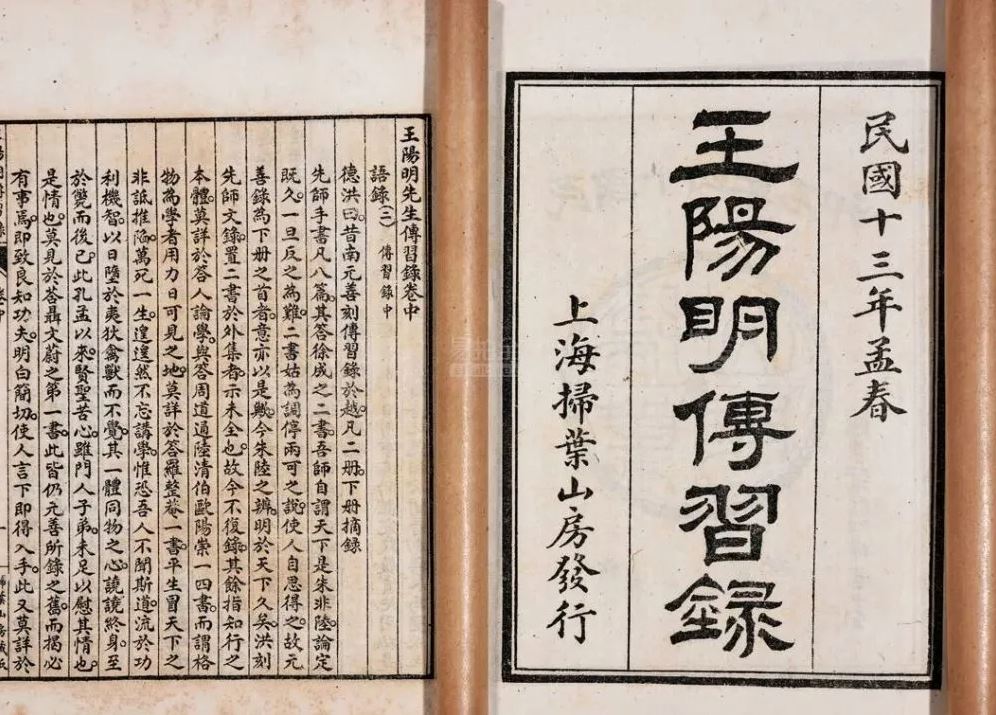 民國十三年孟春
王陽明傳習錄
上海掃葉山房發行
王陽明先生傳習錄卷中
語錄(二) 傳習錄中
德洪曰。昔南元善刻傳習錄於越。凡二册。下册摘錄
先師手書。凡八篇。其答徐成之二書。吾師自謂天下是朱非陸。論定
既久。一旦反之為難。二書姑為調停兩可之說。使人自思得之。故元
善錄為下册之首者。意亦以是歟。今朱陸之辨。明於天下久矣。洪刻
先師文錄。置二書於外集者。示未全也。故今不復錄。其餘指知行之
本體。莫詳於答人論學。與答周道通陸清伯歐陽崇一四書。而謂格
物為學者用力日可見之地。莫詳於答羅整菴一書。平生冒天下之
非詆推陷。萬死一生。遑遑然不忘講學。惟恐吾人不聞斯道。流於功
利機智。以日墮於夷狄禽獸而不覺。其一體同物之心。譊譊終身。至
於斃而後已。此孔孟以來。賢聖苦心。雖門人子弟。未足以慰其情也。
是情也。莫見於答聶文蔚之第一書。此皆仍元善所錄之舊。而揭必
有事焉。即致良知功夫。明白簡切。使人言下即得入手。此又莫詳於